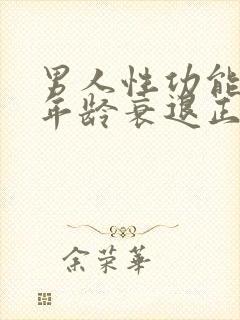 男人性功能
年龄衰退正
余荣华